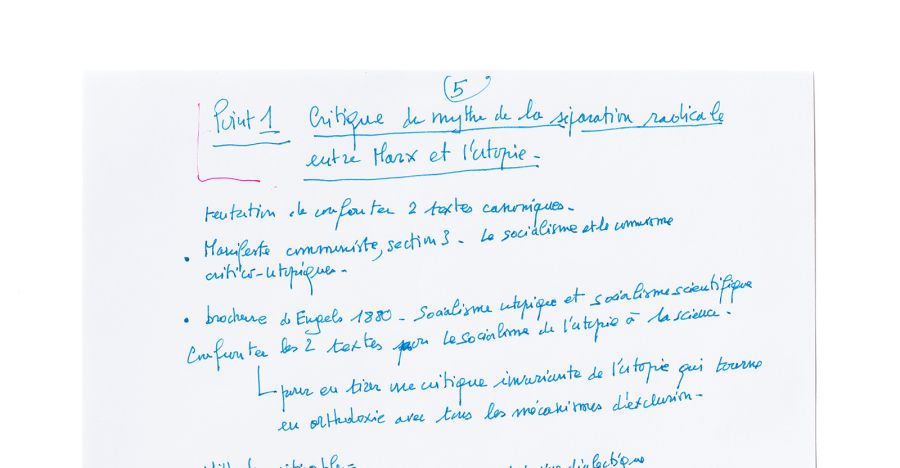 5
Point 1 Critique du mythe de la séparation radicale
entre Marx et l'utopie -
tentation de confronter 2 textes canoniques.
• Manifeste communiste, section 3 - Le socialisme et le communisme
critico-utopiques -
• brochure de Engels 1880 - Socialisme utopique et socialisme scientifique
Confronter les 2 textes Le socialisme de l'utopie à la science.
pour en tirer une critique invariante de l'utopie qui tourne
en orthodoxie avec tous les mécanismes d'exclusion -